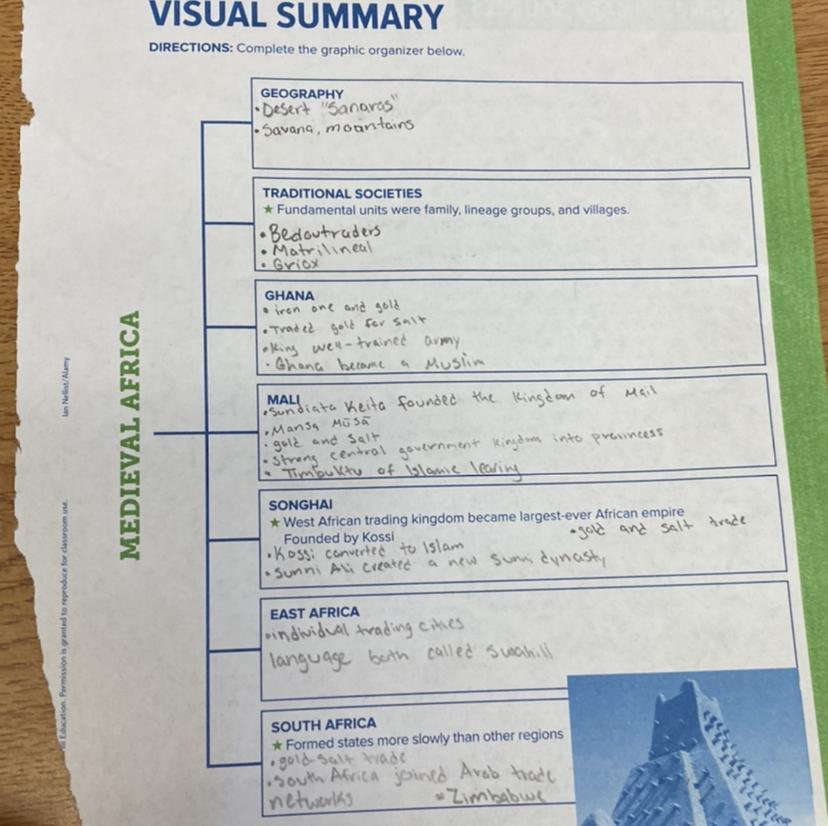 VISUAL SUMMARY
DIRECTIONS: Complete the graphic organizer below.
MEDIEVAL AFRICA
GEOGRAPHY
• Desert "Sanaras"
• Savana, moantains
TRADITIONAL SOCIETIES
★ Fundamental units were family, lineage groups, and villages.
• Bedoutraders
• Matrilineal
• Griox
GHANA
• iron one and gold
• Traded gold for salt
• King well-trained army
• Ghana became a Muslim
MALI
• Sundiata Keita founded the Kingdom of Mail
• Mansa Mūsā
• gold and Salt
• Strong central government kingdom into provincess
• Timbuktu of Islamic learing
SONGHAI
★ West African trading kingdom became largest-ever African empire
Founded by Kossi • gold and salt trade
• Kossi converted to Islam
• Sunni Ali created a new sunni dynasty
EAST AFRICA
• individual trading cities
language both called Swahili
SOUTH AFRICA
★ Formed states more slowly than other regions
• gold-salt trade
• South Africa joined Arab trade
networks • Zimbabwe
Education. Permission is granted to reproduce for classroom use.
Ian Nellist/Alamy